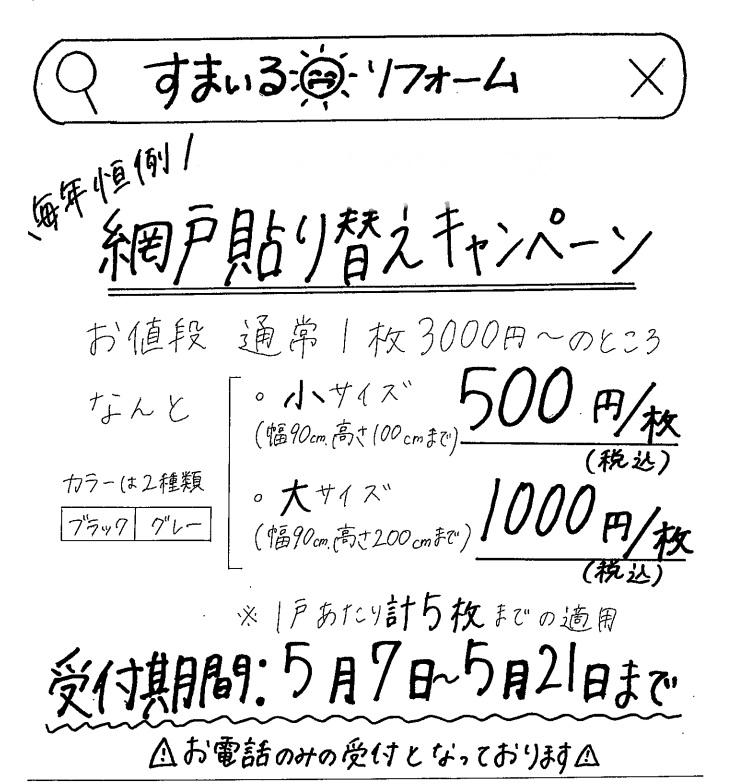 すまいる リフォーム
毎年恒例!
網戸貼り替えキャンペーン
お値段 通常1枚3000円〜のところ
なんと
・小サイズ 500円/枚
(幅90cm.高さ100cmまで)
(税込)
カラーは2種類
ブラック グレー
・大サイズ 1000円/枚
(幅90cm.高さ200cmまで)
(税込)
※1戸あたり計5枚までの適用
受付期間:5月7日〜5月21日まで
⚠お電話のみの受付となっております⚠